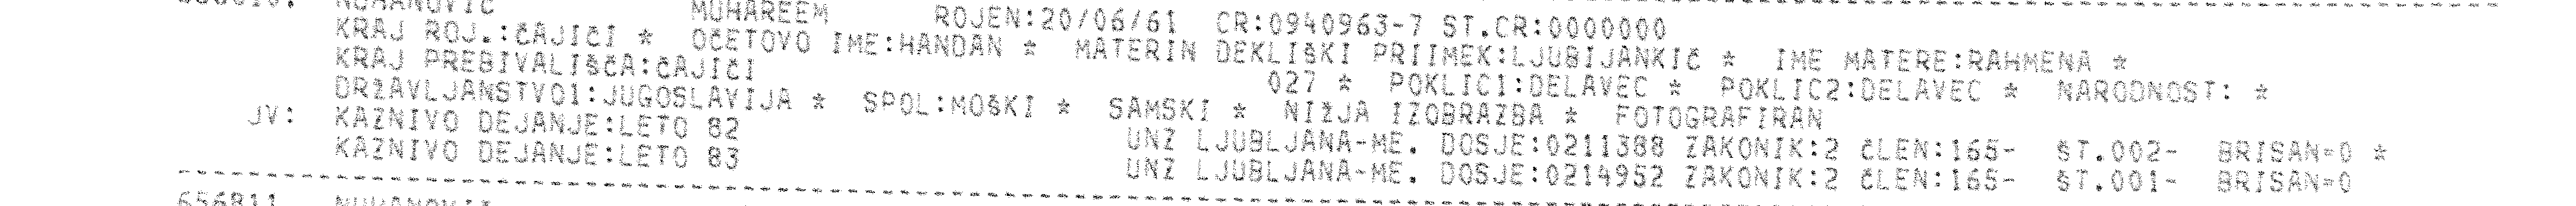 NUHANOVIĆ MUHAREEM ROJEN:20/06/61 CR:0940963-7 ST.CR:0000000
KRAJ ROJ.:ČAJIČI * OČETOVO IME:HANDAN * MATERIN DEKLIŠKI PRIIMEK:LJUBIJANKIČ * IME MATERE:RAHMENA *
KRAJ PREBIVALIŠČA:ČAJIČI 027 * POKLIC1:DELAVEC * POKLIC2:DELAVEC * NARODNOST: *
DRŽAVLJANSTVO1:JUGOSLAVIJA * SPOL:MOŠKI * SAMSKI * NIŽJA IZOBRAZBA * FOTOGRAFIRAN
JV: KAZNIVO DEJANJE:LETO 82 UNZ LJUBLJANA-ME. DOSJE:0211388 ZAKONIK:2 ČLEN:165- ŠT.002- BRISAN=0 *
KAZNIVO DEJANJE:LETO 83 UNZ LJUBLJANA-ME. DOSJE:0214952 ZAKONIK:2 ČLEN:165- ŠT.001- BRISAN=0
656811